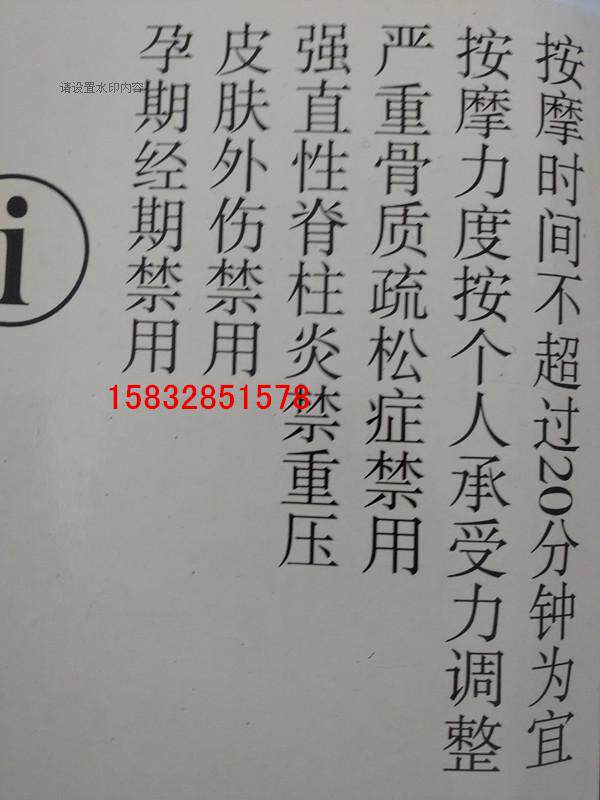 按摩时间不超过20分钟为宜
按摩力度按个人承受力调整
严重骨质疏松症禁用
强直性脊柱炎禁重压
皮肤外伤禁用
孕期经期禁用
i
请设置水印内容
15832851578